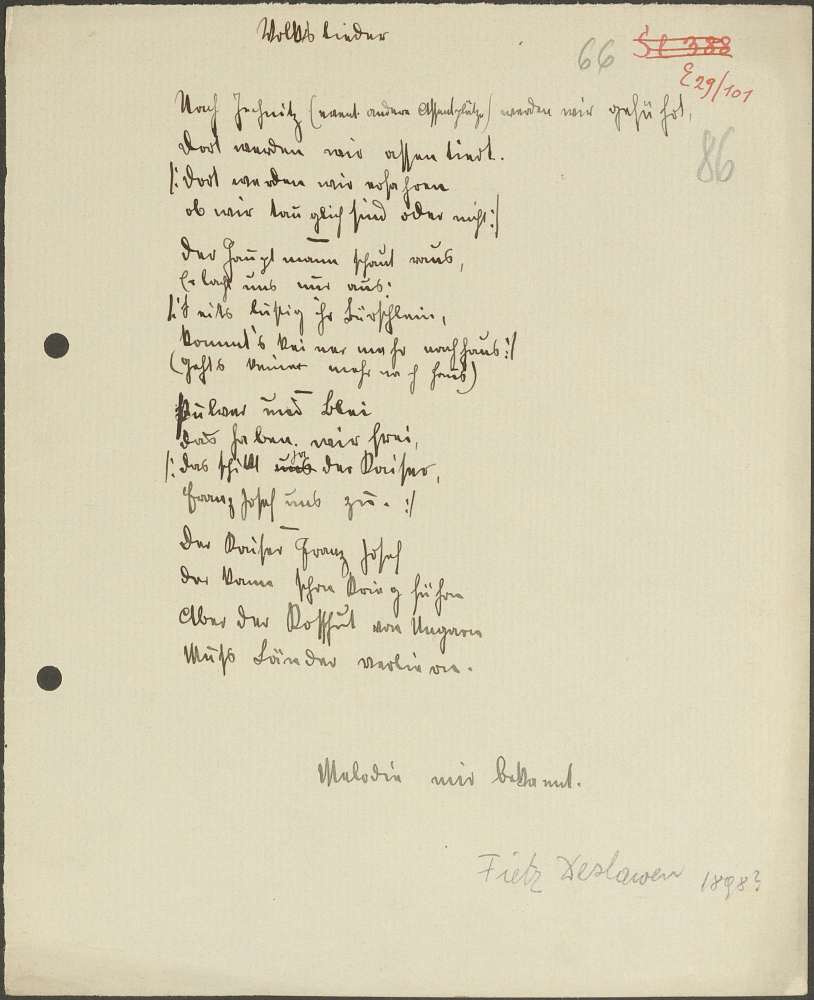 Volkslieder
66 St 388
E 29/101
86
Nach Jechnitz (event. andere Assentplätze) werden wir geführt,
Dort werden wir assentiert.
/: Dort werden wir erfahren
ob wir tauglich sind oder nicht :/
Der Hauptmann schaut raus,
Er lacht uns nur aus:
/: Seits lustig ihr Bürschlein,
kommt's keiner mehr nachhaus :/
(gehts keiner mehr nach haus)
Pulver und Blei
das haben wir frei,
/: das schikt uns ja der Kaiser,
Franz Josef uns zu. :/
Der Kaiser Franz Josef
der kann schon Krieg führn
Aber der Kosshut von Ungarn
Muss Länder verliern.
Melodie mir bekannt.
Fietz Deslawen 1898?